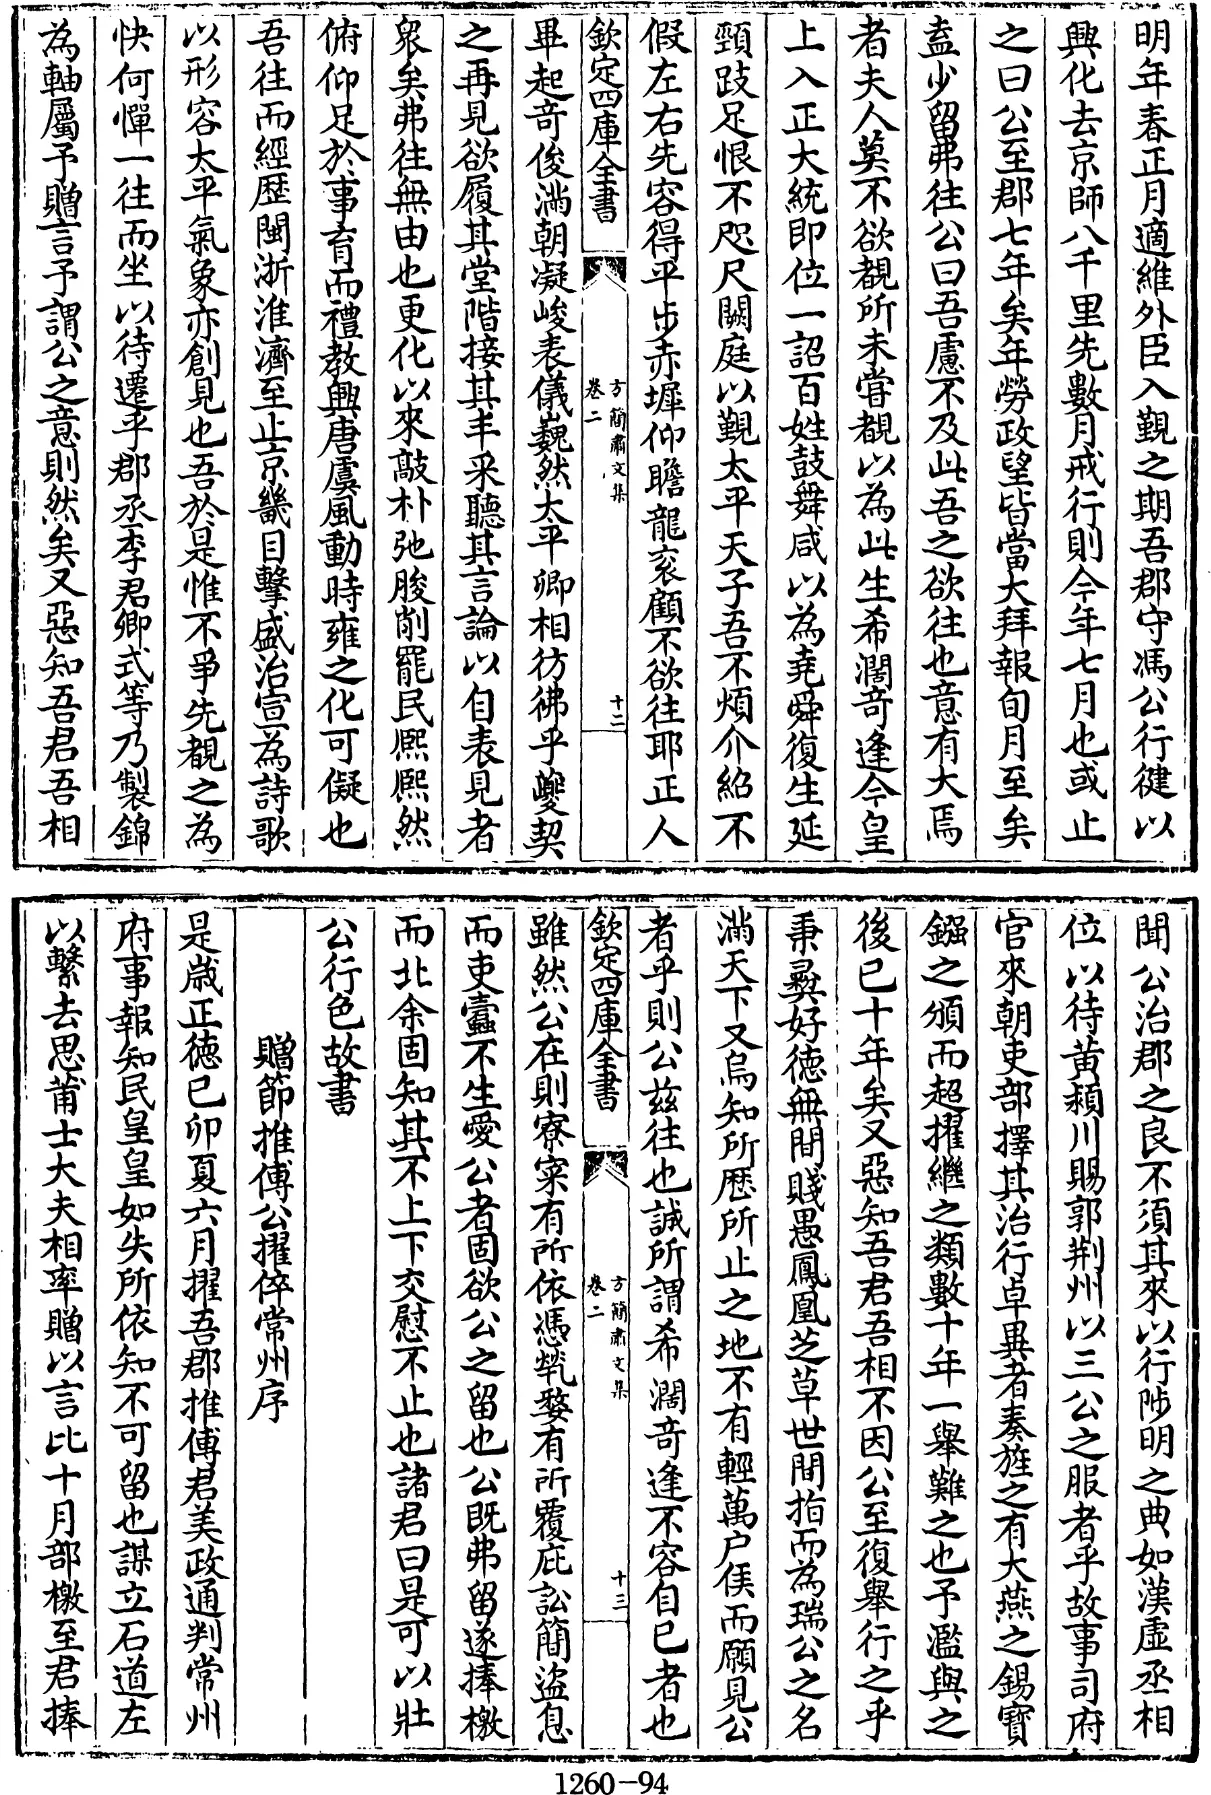 明年春正月適維外臣入覲之期吾郡守馮公行健以
興化去京師八千里先數月戒行則今年七月也或止
之曰公至郡七年矣年勞政望皆當大拜報旬月至矣
盍少留弗往公曰吾慮不及此吾之欲往也意有大焉
者夫人莫不欲覩所未甞覩以為此生希濶奇逢今皇
上入正大統即位一詔百姓鼓舞咸以為堯舜復生延
頸跂足恨不咫尺闕庭以覲太平天子吾不煩介紹不
假左右先容得平步赤墀仰瞻龍衮顧不欲往耶正人
欽定四庫全書
方簡肅文集
卷二
十二
畢起奇俊滿朝凝峻表儀巍然太平卿相彷彿乎夔契
之再見欲履其堂階接其丰采聽其言論以自表見者
衆矣弗往無由也更化以來敲朴弛朘削罷民熙熙然
俯仰足於事育而禮教興唐虞風動時雍之化可儗也
吾往而經歴閩浙淮濟至止京畿目擊盛治宣為詩歌
以形容太平氣象亦創見也吾於是惟不爭先覩之為
快何憚一往而坐以待遷乎郡丞李君卿式等乃製錦
為軸屬予贈言予謂公之意則然矣又惡知吾君吾相
聞公治郡之良不須其來以行陟明之典如漢虛丞相
位以待黄潁川賜郭荆州以三公之服者乎故事司府
官來朝吏部擇其治行卓異者奏旌之有大燕之錫寶
鏹之頒而超擢繼之類數十年一舉難之也予濫與之
後已十年矣又惡知吾君吾相不因公至復舉行之乎
秉彝好德無間賤愚鳳凰芝草世間指而為瑞公之名
滿天下又烏知所歴所止之地不有輕萬户侯而願見公
者乎則公兹往也誠所謂希濶奇逢不容自已者也
欽定四庫全書
方簡肅文集
卷二
十三
雖然公在則寮寀有所依憑煢嫠有所覆庇訟簡盜息
而吏蠧不生愛公者固欲公之留也公既弗留遂捧檄
而北余固知其不上下交慰不止也諸君曰是可以壯
公行色故書
贈節推傅公擢倅常州序
是歳正德己卯夏六月擢吾郡推傅君美政通判常州
府事報知民皇皇如失所依知不可留也謀立石道左
以繫去思莆士大夫相率贈以言比十月部檄至君捧
1260-94